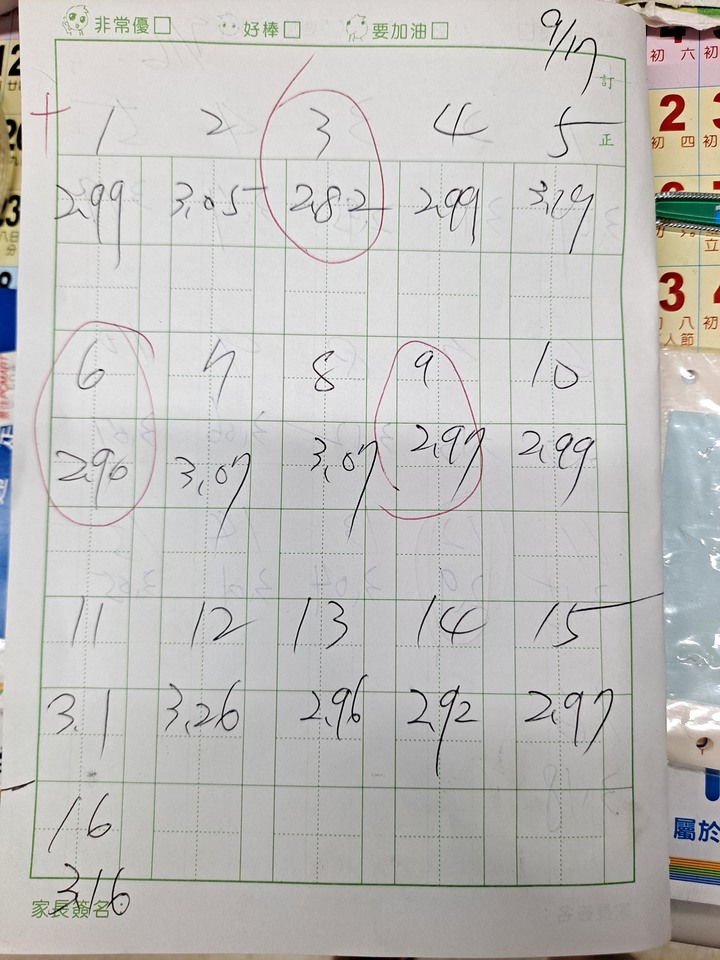 非常優□ 好棒□ 要加油□
9/17
訂正
+ 1 2 3 4 5
2.99 3.05 2.82 2.99 3.19
6 7 8 9 10
2.96 3.07 3.07 2.97 2.99
11 12 13 14 15
3.1 3.26 2.96 2.92 2.97
16
3.16
家長簽名:
初 六
2 3
初 四
3
初 八
屬於